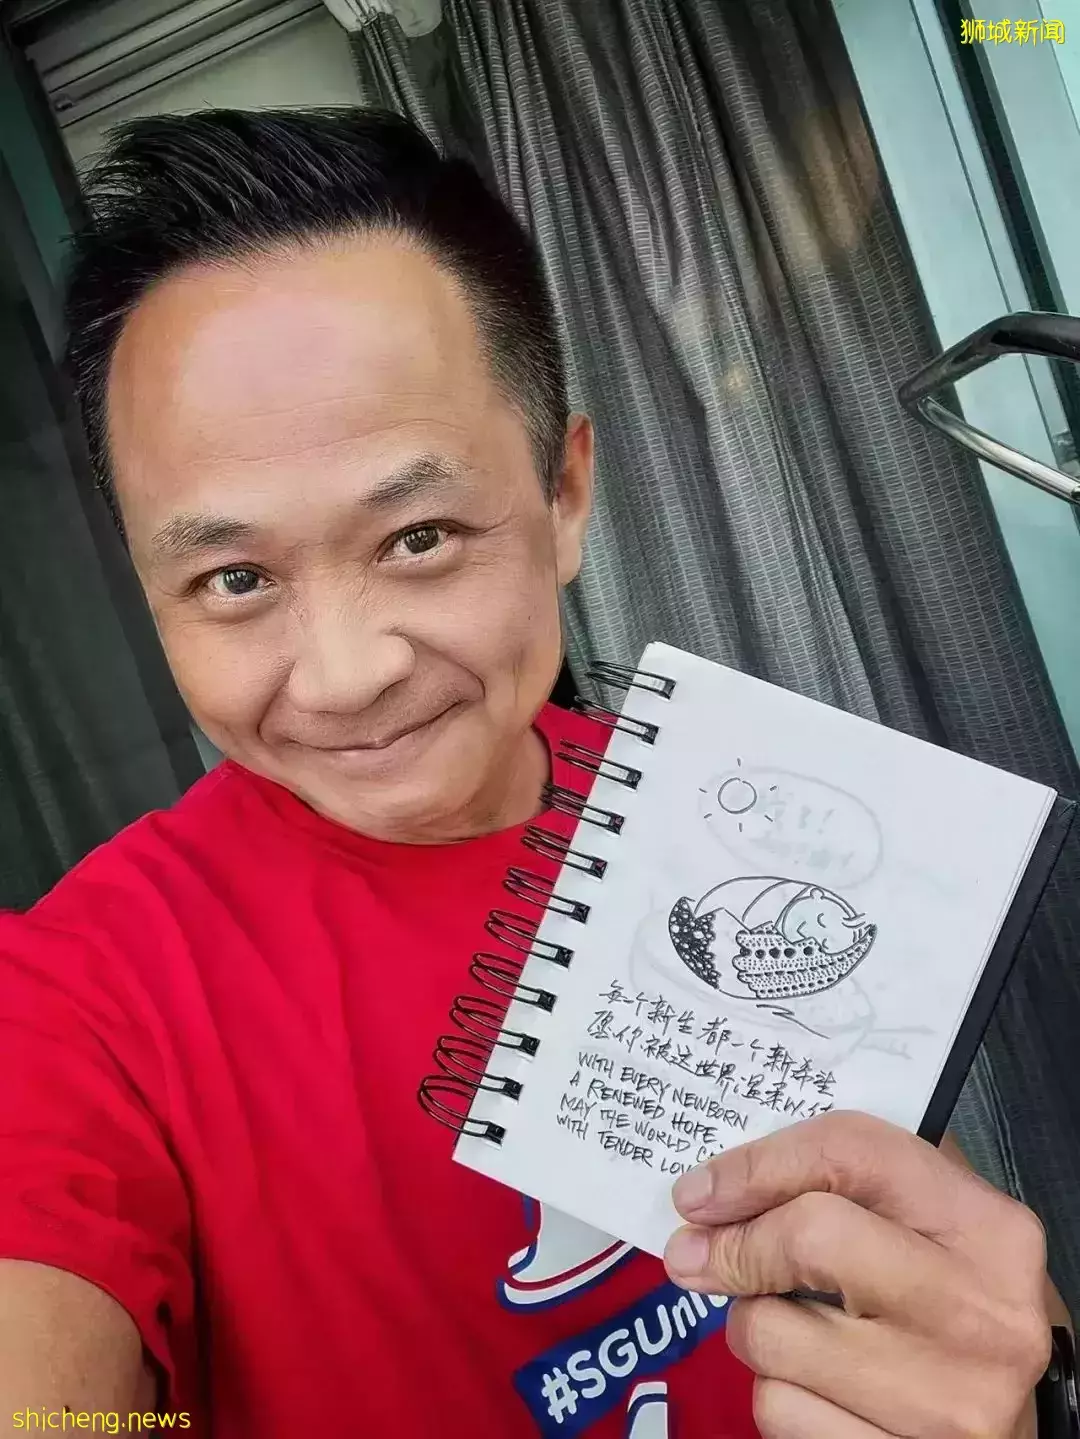 狮城新闻
每一个新生都一个新希望
愿你被这世界温柔以待
WITH EVERY NEWBORN
A RENEWED HOPE.
MAY THE WORLD
WITH TENDER
#SGUni
shicheng.news